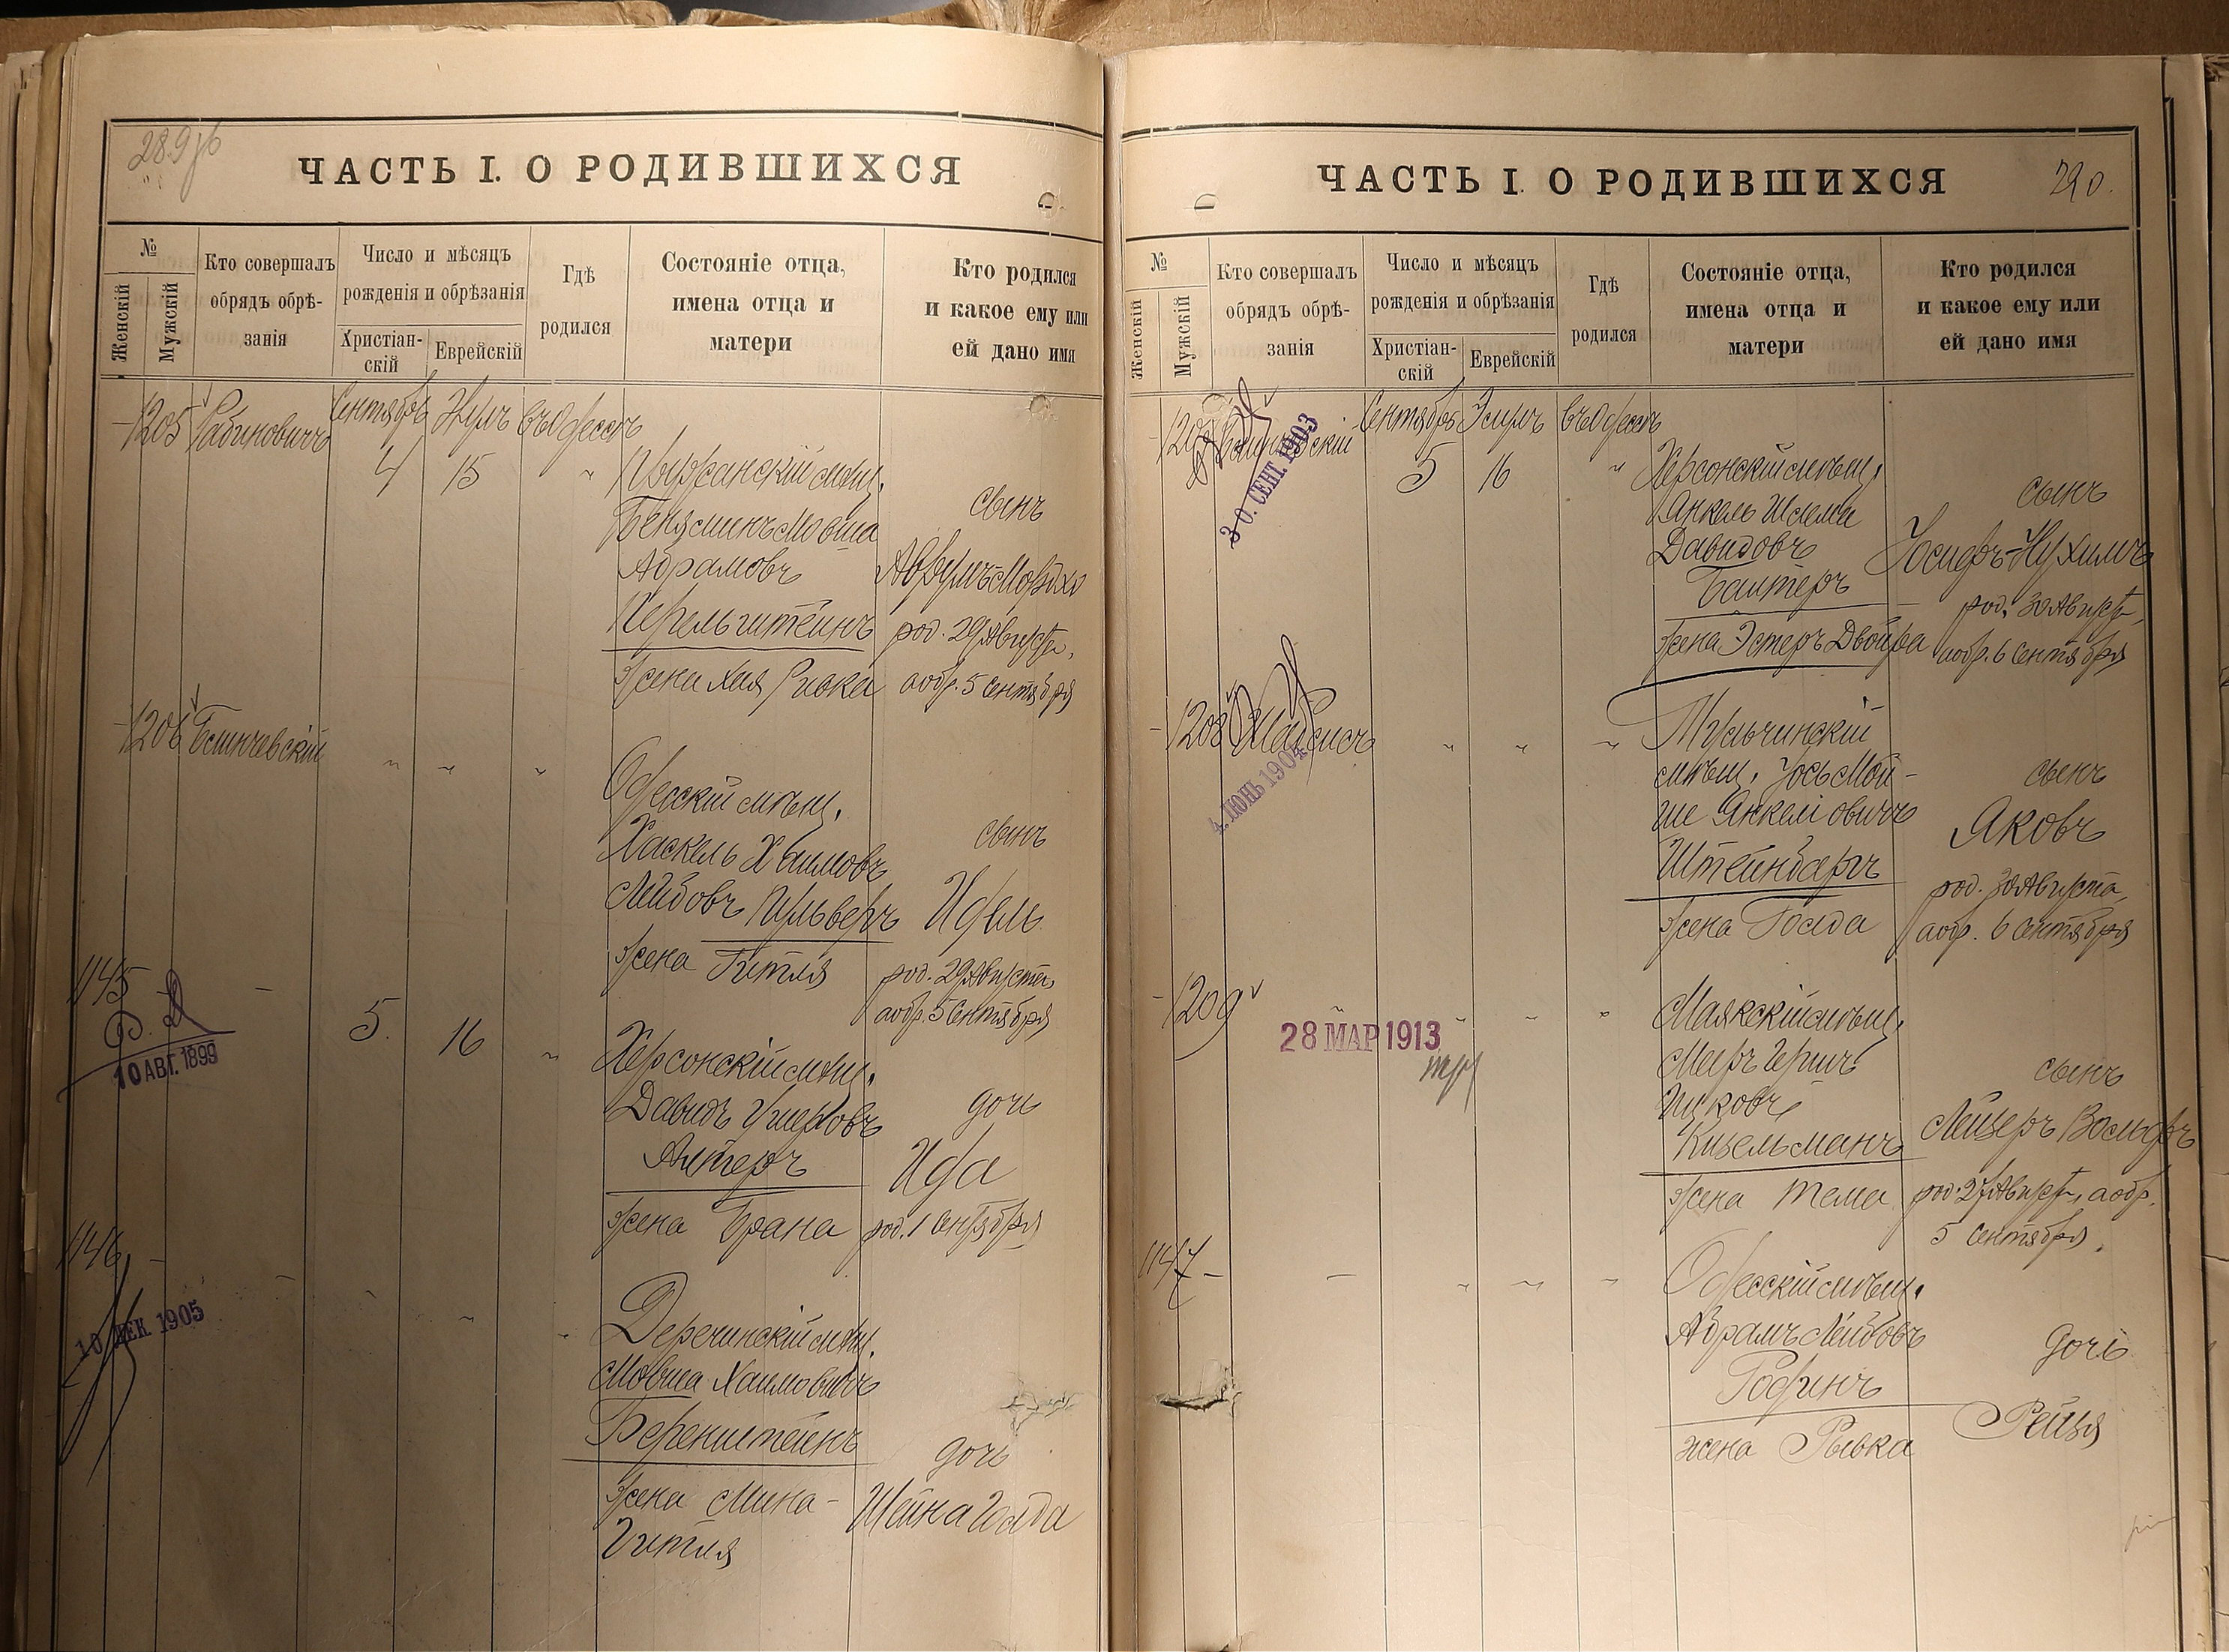 289 об
ЧАСТЬ I. О РОДИВШИХСЯ
№
Женскій
Мужскій
Кто совершалъ
обрядъ обрѣ-
занія
Число и мѣсяцъ
рожденія и обрѣзанія
Христіан-
скій
Еврейскій
Гдѣ
родился
Состояніе отца,
имена отца и
матери
Кто родился
и какое ему или
ей дано имя
1205 Рабиновичъ Сентябрь въ Одессѣ
4 15
мѣщ.
Беньяминъ Мовша
Абрамовъ
Перельштейнъ
жена Хая Ривка
сынъ
Аврумъ-Мордхо
род. 29 Августа,
а обр. 5 Сентября
1206
Одесскій мѣщ.
Хаскель Хаимовъ
Лейбовъ
жена Гитля
сынъ
Идель
род. 29 Августа,
а обр. 5 Сентября
1145
10 АВГ. 1899
5. 16
Херсонскій мѣщ.
Давидъ Ушеровъ
Алтеръ
жена Брана
дочь
Ида
род. 1 Сентября
1146
10 ДЕК 1905
Деречинскій мѣщ.
Мовша Хаимовичъ
Беренштейнъ
жена Мина-
Гитля
дочь
Шейна Голда
ЧАСТЬ I. О РОДИВШИХСЯ
290.
№
Женскій
Мужскій
Кто совершалъ
обрядъ обрѣ-
занія
Число и мѣсяцъ
рожденія и обрѣзанія
Христіан-
скій
Еврейскій
Гдѣ
родился
Состояніе отца,
имена отца и
матери
Кто родился
и какое ему или
ей дано имя
Сентябрь въ Одессѣ
30. СЕНТ. 1903
5 16
Херсонскій мѣщ.
Янкель Шлема
Давидовъ
жена Эстеръ Двойра
сынъ
Іосифъ-Нухимъ
род. 30 Август.
а обр. 6 Сентября
1208
4. ІЮНЬ 1904
Тульчинскій
мѣщ. Іось Мой-
ше Янкелiовичъ
Штейнбаргъ
жена Голда
сынъ
Яковъ
род. 30 Августа,
а обр. 6 Сентября
1209
28 МАР 1913
Маякскій мѣщ.
Меиръ Гершъ
Ицковъ
Кизельманъ
жена Тема
сынъ
Лейзеръ Вольфъ
род. 27 Август., а обр.
5 Сентября.
1147
Одесскій мѣщ.
Абрамъ Лейбовъ
жена Рывка
дочь
Рейзя